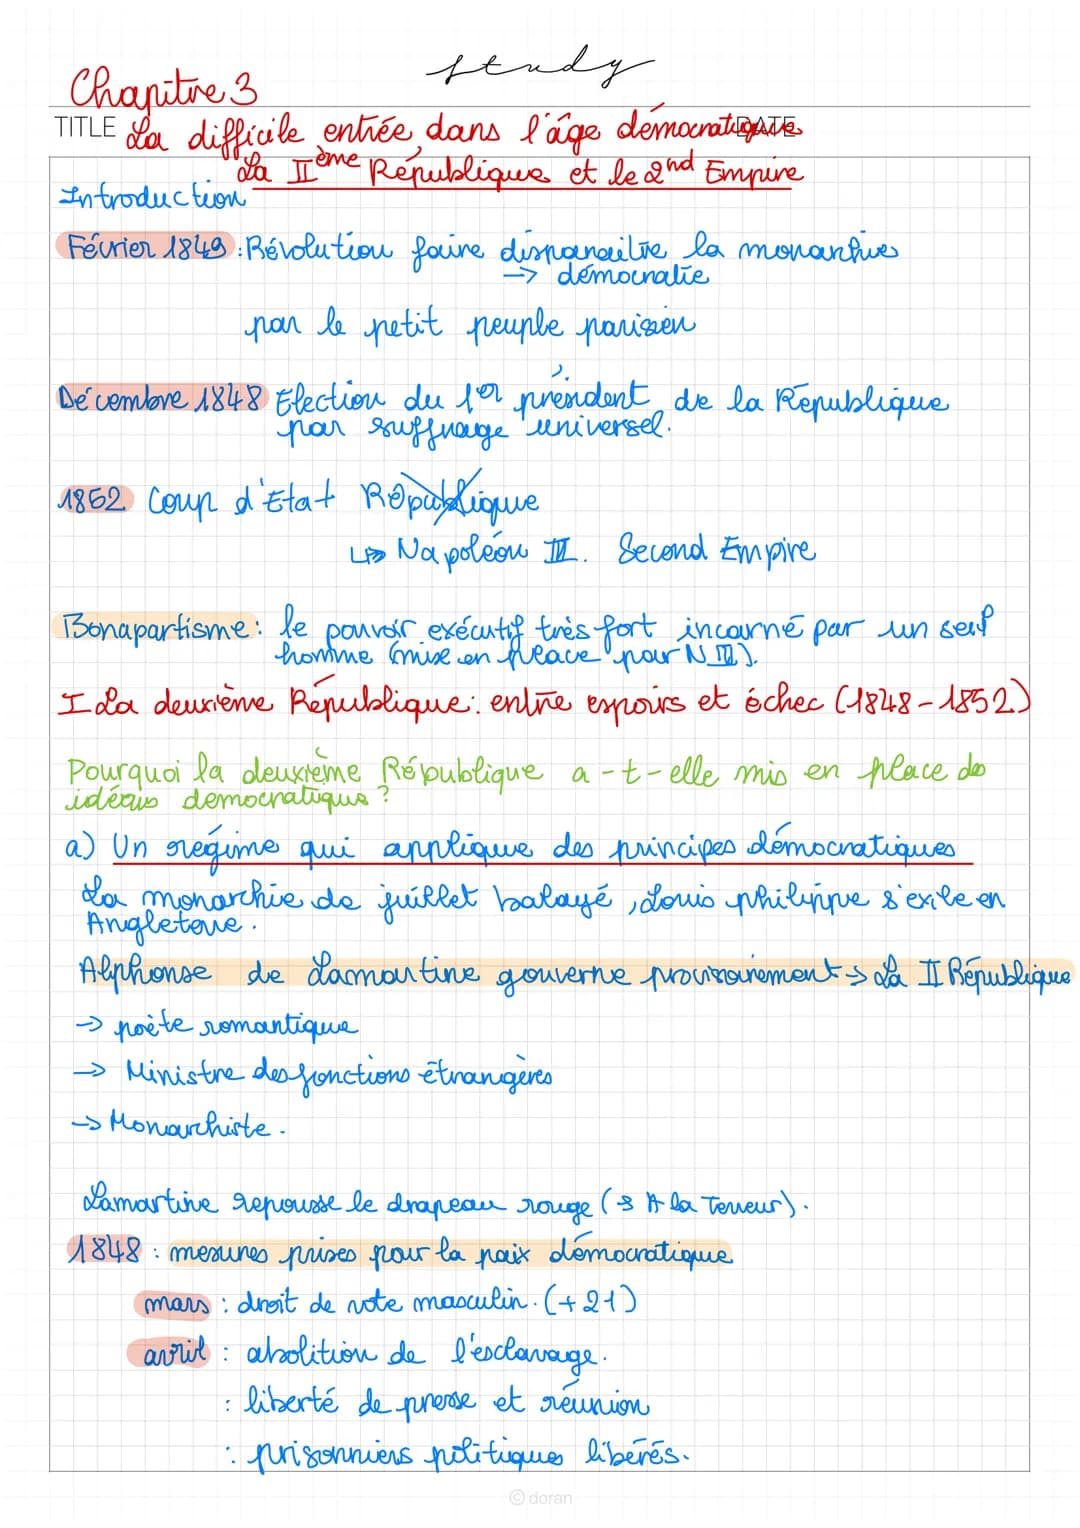 study
Chapitre 3
TITLE La difficile entrée dans l'âge démocratique DATE
La IIème République et le 2nd Empire
Introduction
Février 1849 : Révolution faire disparaître la monarhie
-> démocratie
par le petit peuple parisien
Décembre 1848 Election du 1er président de la République
par suffrage universel.
1862 Coup d'Etat République
↳ Napoléon III. Second Empire
Bonapartisme : le pouvoir exécutif très fort incarné par un seul
homme (mise en place par N III).
I La deuxième République : entre espoirs et échec (1848-1852)
Pourquoi la deuxième République a-t-elle mis en place de
idéaus democratique ?
a) Un régime qui applique des principes démocratiques
La monarchie de juillet balayé, Louis philippe s'exile en
Angleterre.
Alphonse de Lamartine gouverne provisoirement -> La II République
-> poète romantique
-> Ministre des fonctions étrangères
-> Monarchiste.
Lamartine repousse le drapeau rouge (-> A la Terreur).
1848 : mesures prises pour la paix démocratique
mars : droit de vote masculin. (+21)
avril : abolition de l'esclavage.
: liberté de presse et réunion
: prisonniers politiques libérés.
© doran